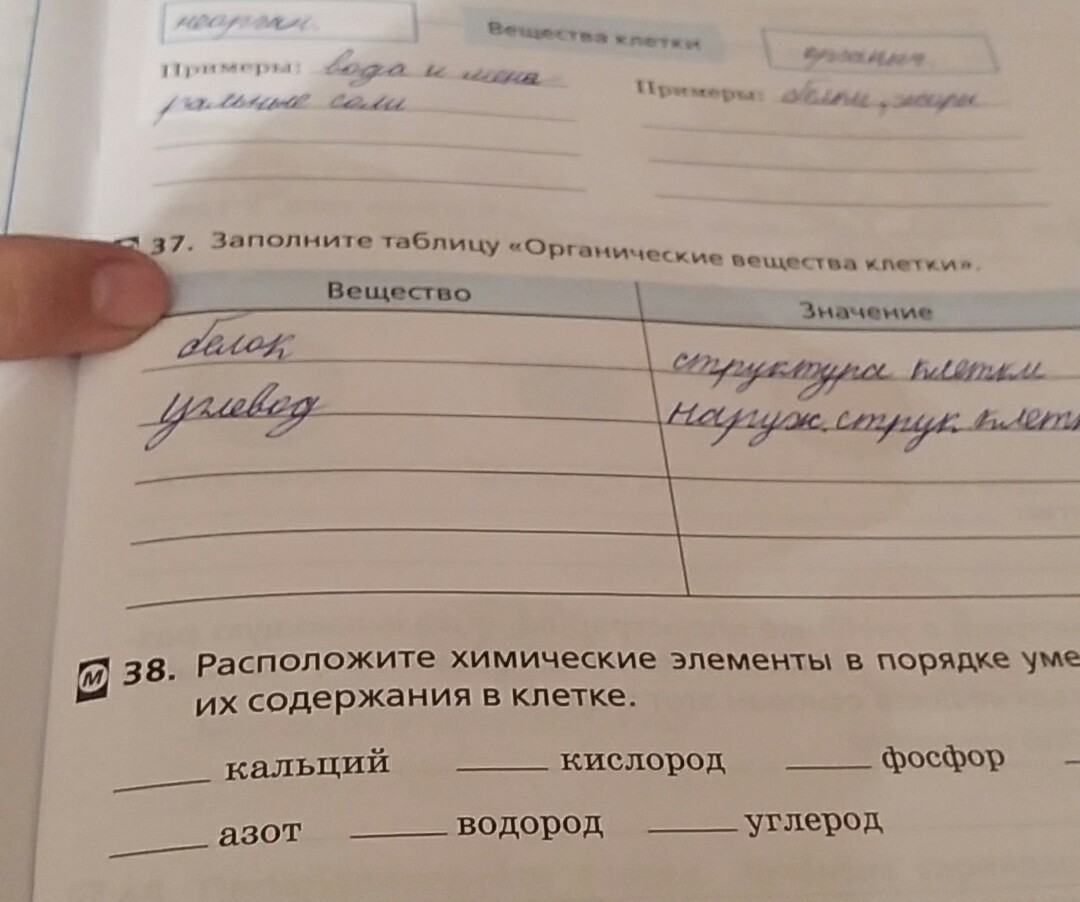 неорган.
Вещества клетки
органич.
Примеры: вода и мине
ральные соли
Примеры: белки, жиры
37. Заполните таблицу «Органические вещества клетки».
Вещество Значение
белок структура клетки
углевод наруж. струк. клетк
М 38. Расположите химические элементы в порядке уме
их содержания в клетке.
____ кальций ____ кислород ____ фосфор
____ азот ____ водород ____ углерод